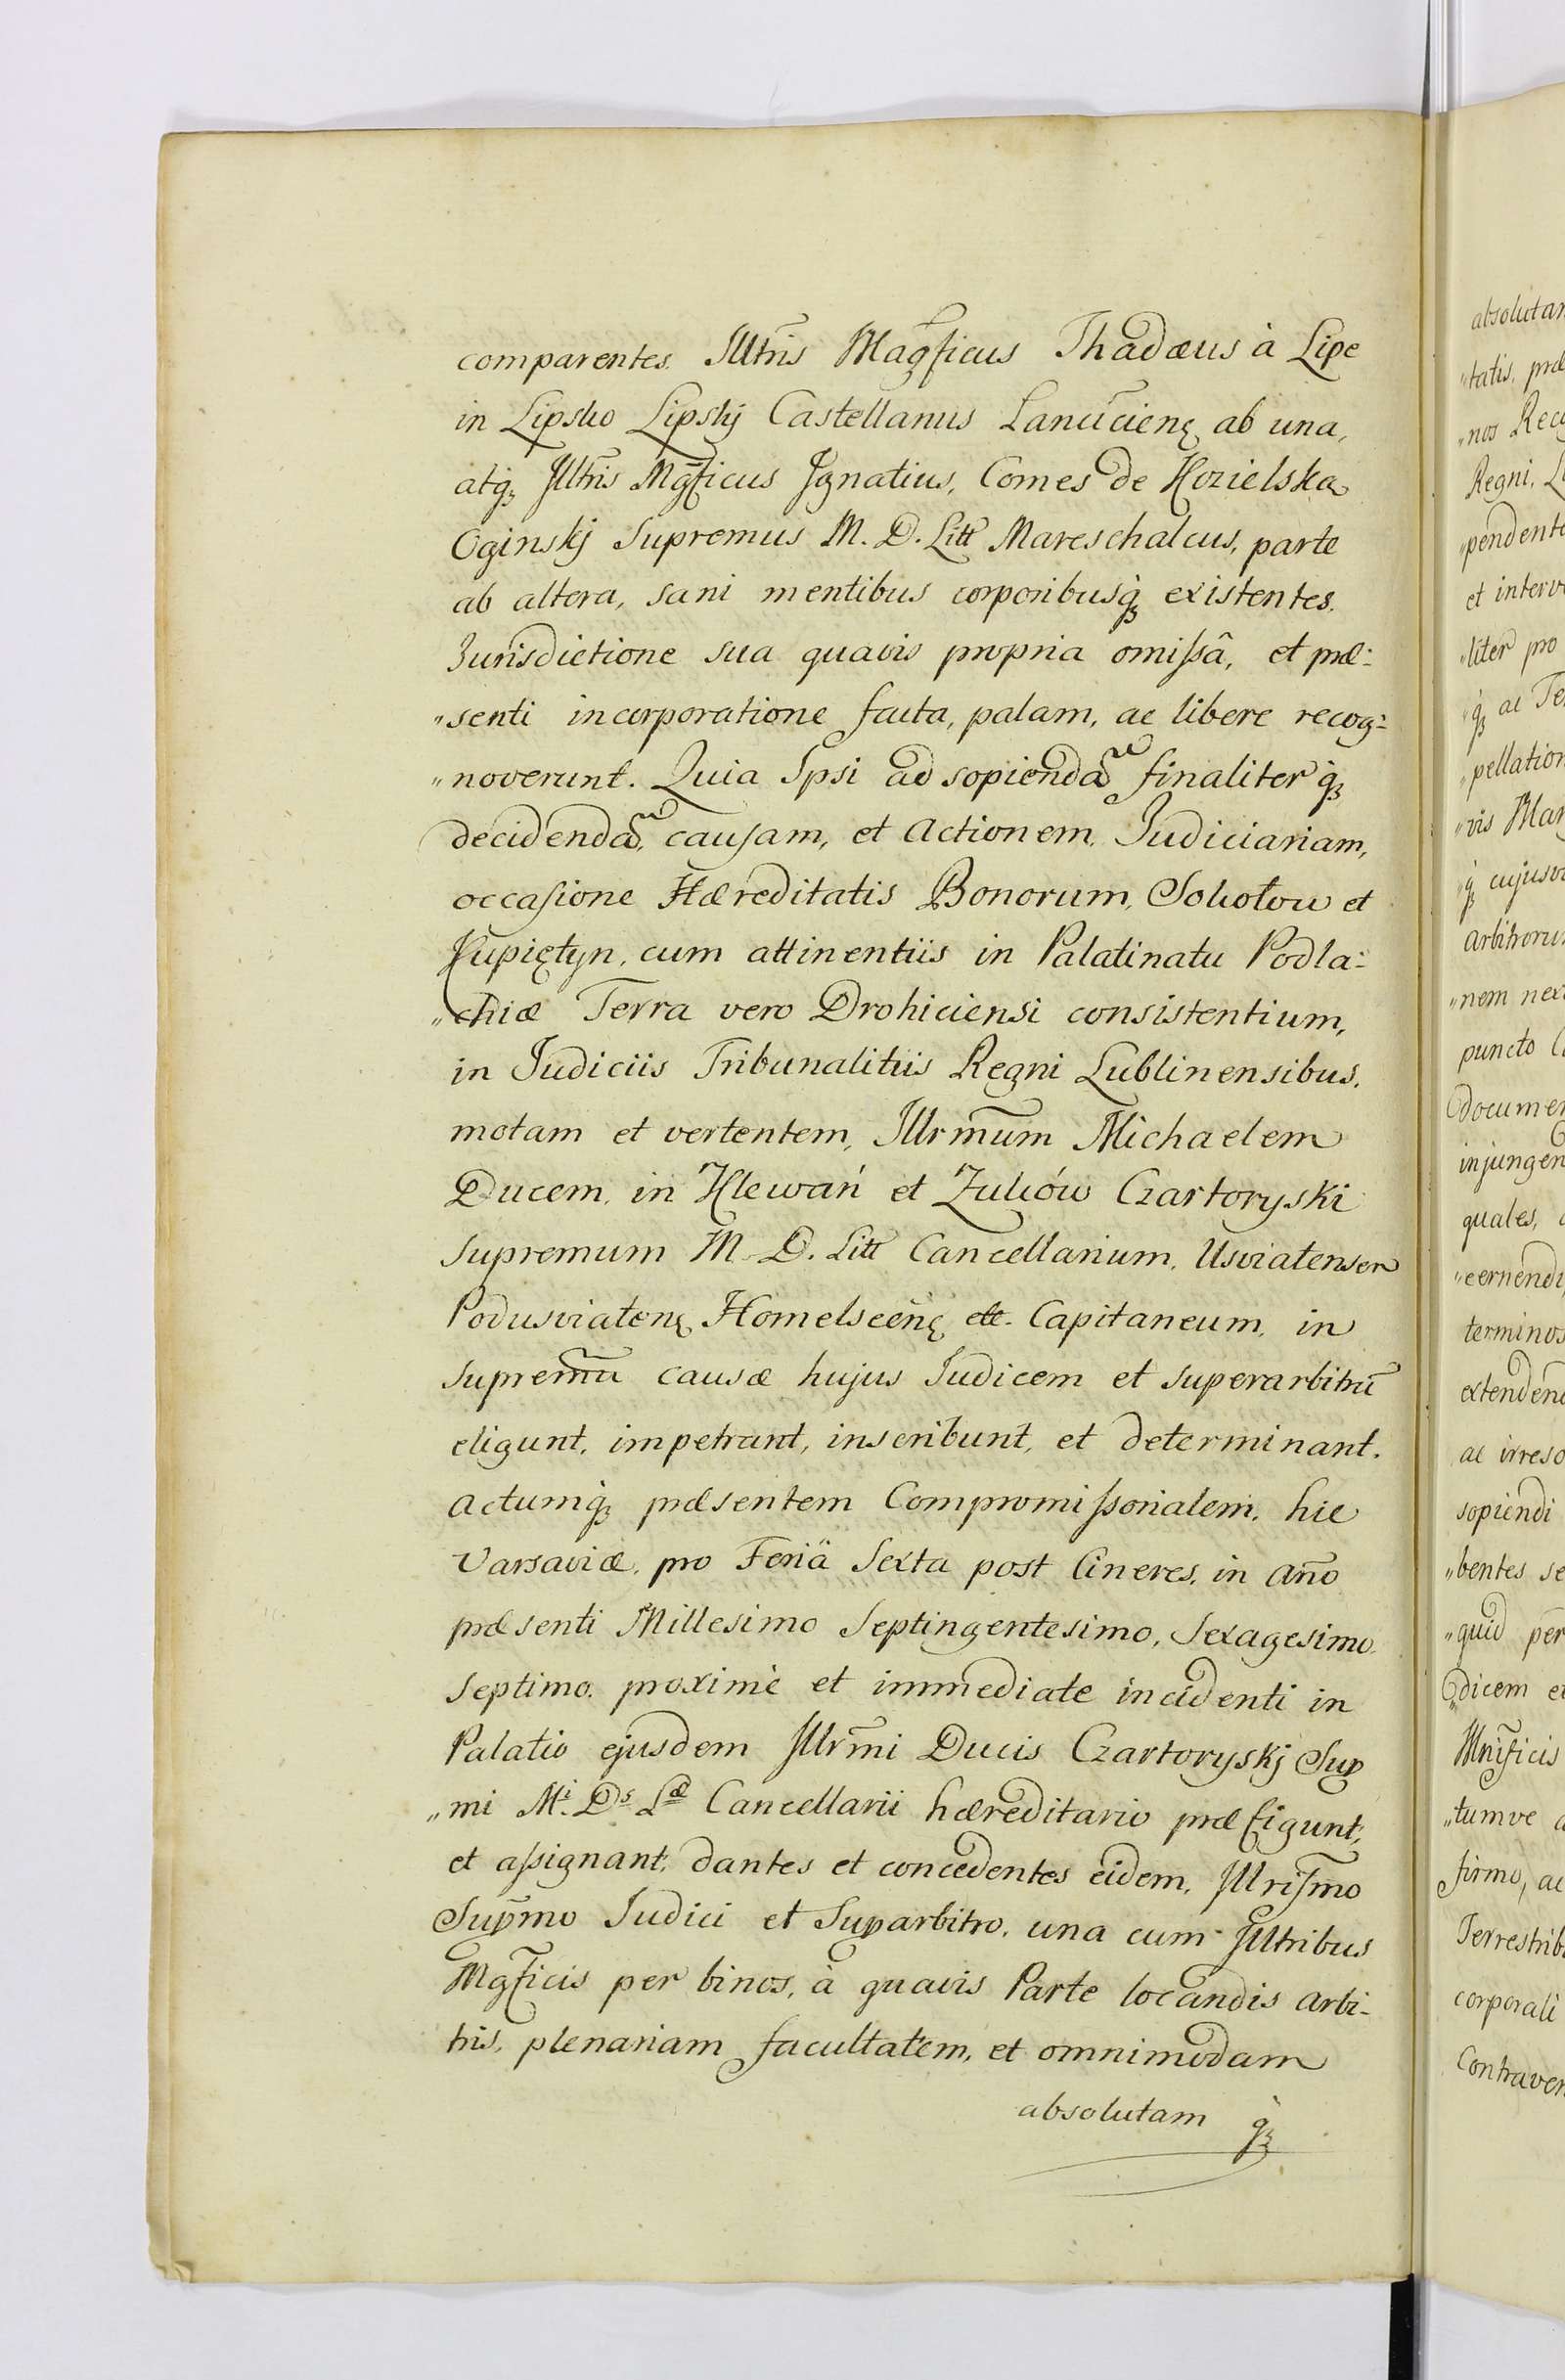 comparentes. Illtris Magficus Thadæus à Lipe
in Lipsko Lipskij Castellanus Lancicienę ab una,
atq̀ꝫ Illtris Mgficus Ignatius, Comes de Kozielska
Oginskj Supremus M. D. Litt Mareschalcus, parte
ab altera, sani mentibus corporibusq̀ꝫ existentes.
Jurisdictione sua quavis propria omissâ, et præ=
„senti incorporatione facta, palam, ac libere recog=
„noverunt. Quia Ipsi ad sopiendã finaliter q̀ꝫ
decidendã, causam, et Actionem, Judiciariam,
occasione Hæreditatis Bonorum, Sokołow et
Kupiętyn, cum attinentiis in Palatinatu Podla=
„chiæ Terra vero Drohiciensi consistentium,
in Judiciis Tribunalitiis Regni Lublinensibus,
motam et vertentem, Illrm̃um Michaelem
Ducem, in Klewań et Żuków Czartoryski
Supremum M. D. Litt Cancellarium, Usviatensem
Podusviatenę Homelscenę etc. Capitaneum, in
suprem̃u causæ hujus Judicem et Superarbitrũ
eligunt, impetrant, inscribunt, et determinant.
Actumq̀ꝫ præsentem Compromissorialem, hic
Varsaviæ, pro Feriä Sexta post Cineres, in Año
præsenti Millesimo Septingentesimo, Sexagesimo
Septimo, proximè et immediate incidenti in
Palatio ejusdem Illrm̃i Ducis Czartoryskj Sup
„mi Mi. Ds Læ Cancellarii hæreditario præfigunt,
et assignant, dantes et concedentes eidem, Illrissm̃o
Sup̃mo Judici et Suparbitro, una cum Illtribus
Mgficis per binos, à quavis Parte locandis arbi-
tris, plenariam facultatem, et omnimodam
absolutam q̀ꝫ
absolutam
„tatis, præ
„nos Reco
Regni, L
„pendente
et interv
„liter pro
q̀ꝫ ac Ter
„pellation
„vis Man
q̀ꝫ cujusv
Arbitrorum
„nem nex
puncto C
documen
injungen
quales,
„cernendi
terminos
extendend
ac irreso
sopiendi
„bentes se
„quid per
„dicem et
Mnificis
„tumve a
firmo, ac
Terrestrib
corporali
Contraven